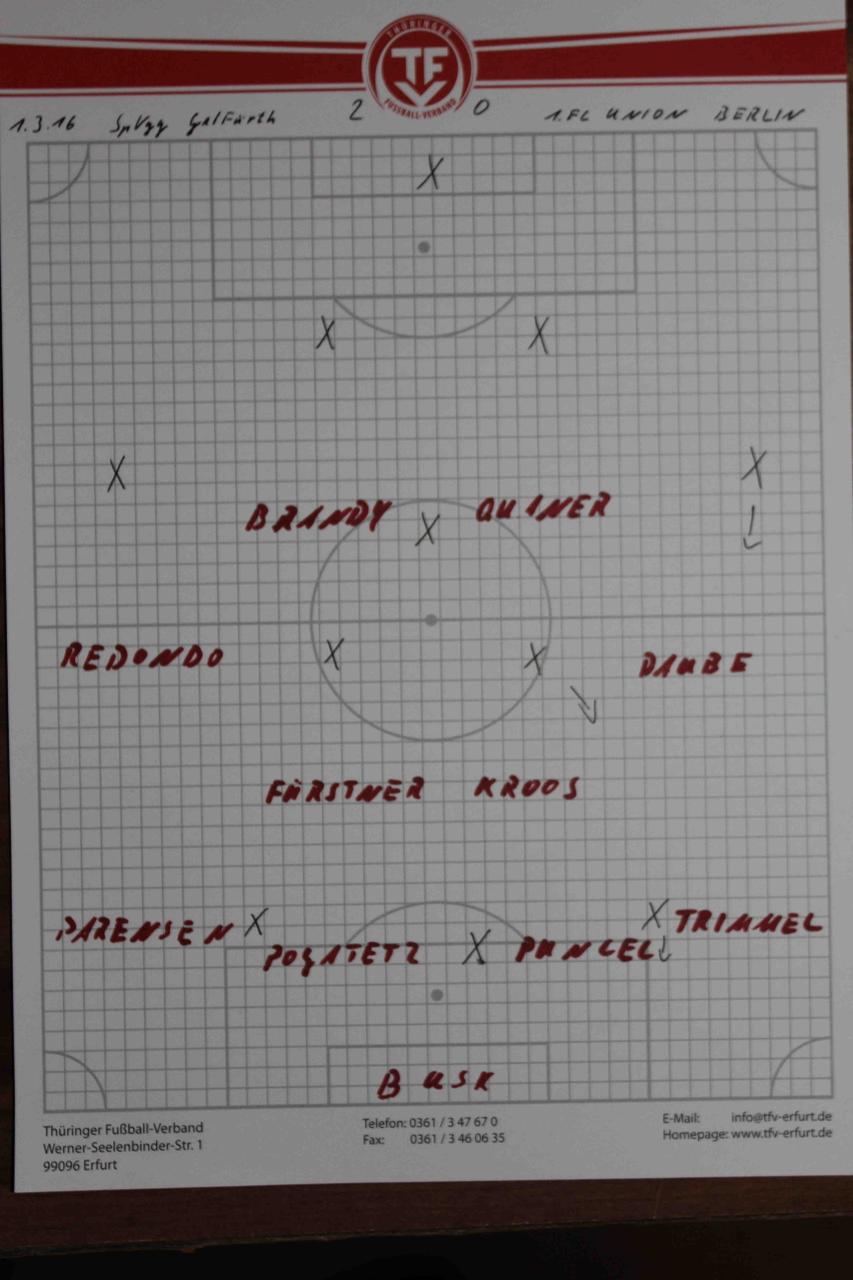 THÜRINGER
TF
FUSSBALL-VERBAND
1.3.16 SpVgg GrlFürth 2 0 1.FC UNION BERLIN
X
X X
X X
BRANDY QUINER
X
REDONDO X X DAUBE
FÜRSTNER KROOS
PARENSEN X X TRIMMEL
POGATETZ X PUNCEL
BUSK
Thüringer Fußball-Verband
Werner-Seelenbinder-Str. 1
99096 Erfurt
Telefon: 0361 / 3 47 67 0
Fax: 0361 / 3 46 06 35
E-Mail: info@tfv-erfurt.de
Homepage: www.tfv-erfurt.de